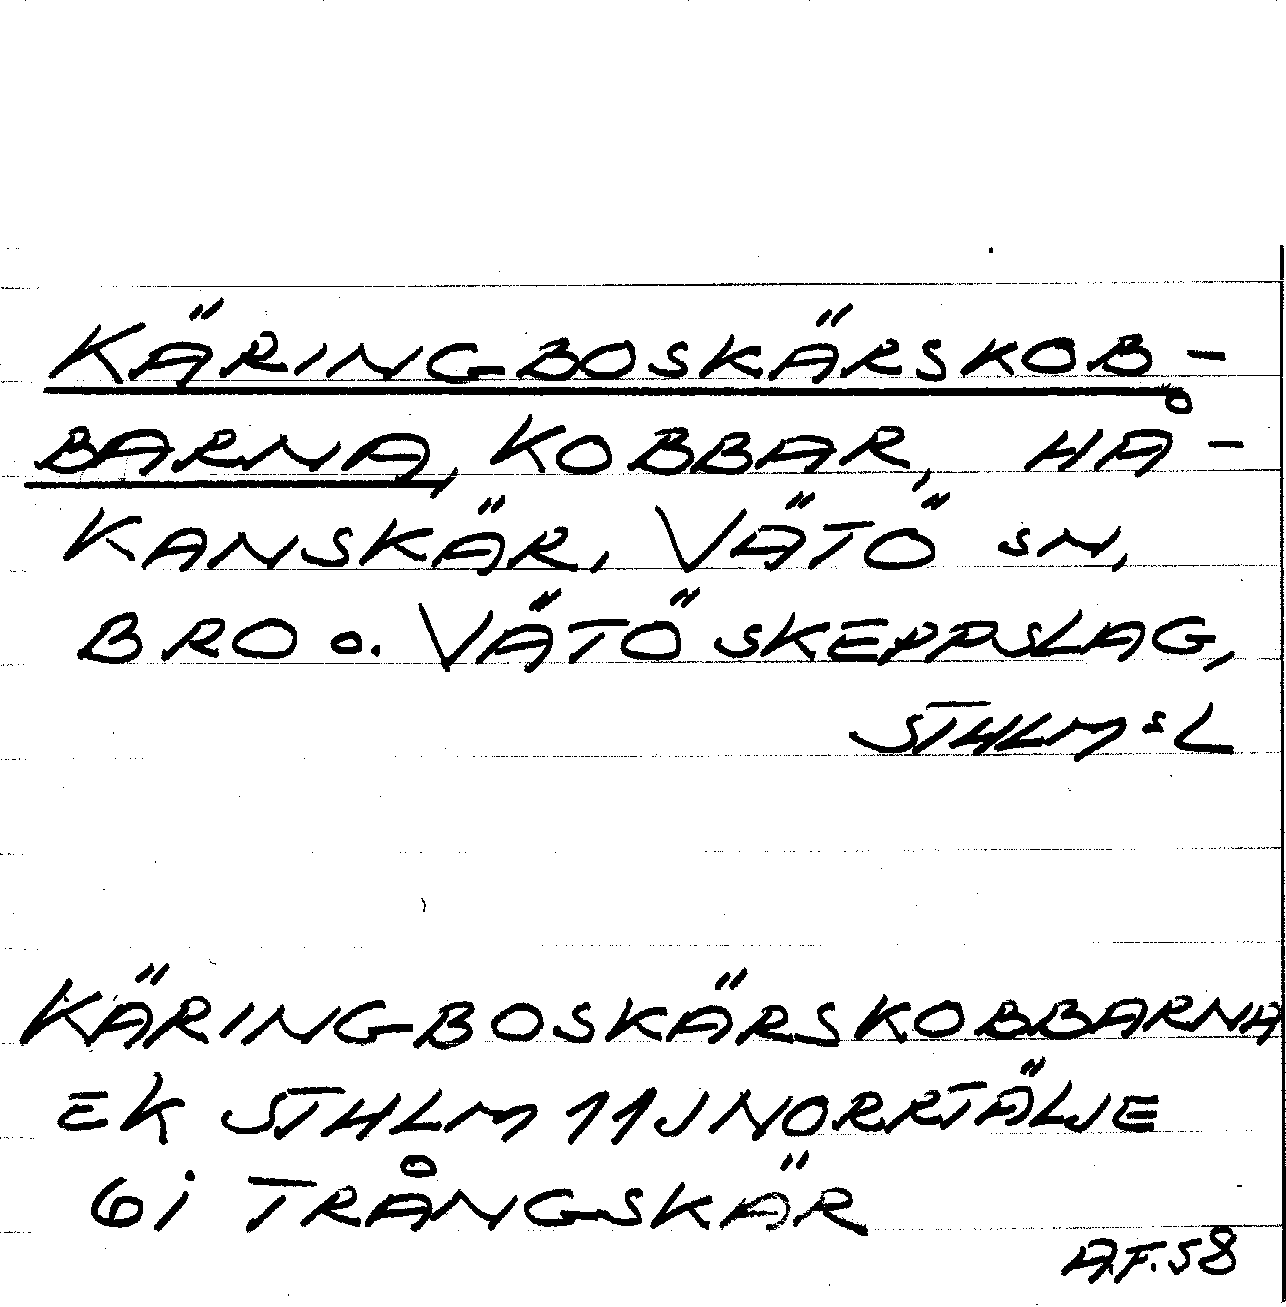 KÄRINGBOSKÄRSKOB-
BARNA, KOBBAR, HÅ-
KANSKÄR, VÄTÖ SN,
BRO O. VÄTÖ SKEPPSLAG,
STHLMS L
KÄRINGBOSKÄRSKOBBARNA
EK STHLM 11J NORRTÄLJE
6i TRÅNGSKÄR
A.F.58